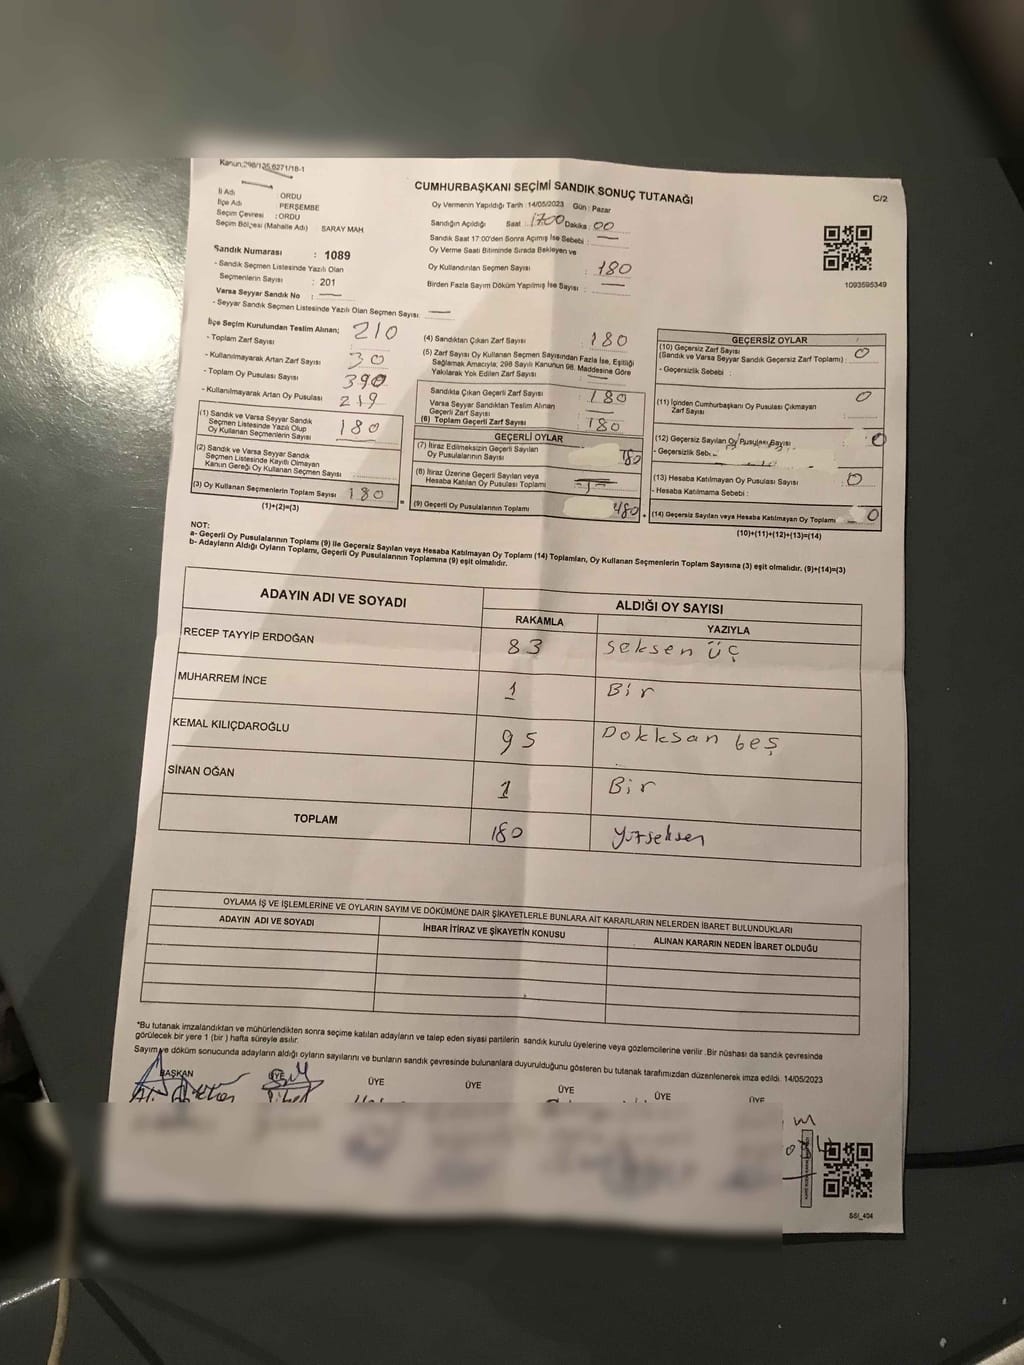 Kanun:298/135,6271/18-1
CUMHURBAŞKANI SEÇİMİ SANDIK SONUÇ TUTANAĞI
C/2
İl Adı : ORDU
İlçe Adı : PERŞEMBE
Seçim Çevresi : ORDU
Seçim Bölgesi (Mahalle Adı) SARAY MAH.
Oy Vermenin Yapıldığı Tarih : 14/05/2023 Gün : Pazar
Sandığın Açıldığı Saat : 1700 Dakika : 00
Sandık Saat 17:00'den Sonra Açımış İse Sebebi :
Oy Verme Saati Bitiminde Sırada Bekleyen ve
Oy Kullandırılan Seçmen Sayısı : 180
Birden Fazla Sayım Döküm Yapılmış İse Sayısı :
1093595349
Sandık Numarası : 1089
- Sandık Seçmen Listesinde Yazılı Olan
Seçmenlerin Sayısı : 201
Varsa Seyyar Sandık No :
- Seyyar Sandık Seçmen Listesinde Yazılı Olan Seçmen Sayısı:
İlçe Seçim Kurulundan Teslim Alınan;
- Toplam Zarf Sayısı : 210
- Kullanılmayarak Artan Zarf Sayısı : 30
- Toplam Oy Pusulası Sayısı : 390
- Kullanılmayarak Artan Oy Pusulası : 219
(1) Sandık ve Varsa Seyyar Sandık
Seçmen Listesinde Yazılı Olup
Oy Kullanan Seçmenlerin Sayısı : 180
(2) Sandık ve Varsa Seyyar Sandık
Seçmen Listesinde Kayıtlı Olmayan
Kanun Gereği Oy Kullanan Seçmen Sayısı :
(3) Oy Kullanan Seçmenlerin Toplam Sayısı : 180
(1)+(2)=(3)
(4) Sandıktan Çıkan Zarf Sayısı : 180
(5) Zarf Sayısı Oy Kullanan Seçmen Sayısından Fazla İse, Eşitliği
Sağlamak Amacıyla; 298 Sayılı Kanunun 98. Maddesine Göre
Yakılarak Yok Edilen Zarf Sayısı :
Sandıkta Çıkan Geçerli Zarf Sayısı : 180
Varsa Seyyar Sandıktan Teslim Alınan
Geçerli Zarf Sayısı :
(6) Toplam Geçerli Zarf Sayısı : 180
GEÇERLİ OYLAR
(7) İtiraz Edilmeksizin Geçerli Sayılan
Oy Pusulalarının Sayısı : 180
(8) İtiraz Üzerine Geçerli Sayılan veya
Hesaba Katılan Oy Pusulası Toplamı
(9) Geçerli Oy Pusulalarının Toplamı : 180
GEÇERSİZ OYLAR
(10) Geçersiz Zarf Sayısı
(Sandık ve Varsa Seyyar Sandık Geçersiz Zarf Toplamı) : 0
- Geçersizlik Sebebi :
(11) İçinden Cumhurbaşkanı Oy Pusulası Çıkmayan
Zarf Sayısı : 0
(12) Geçersiz Sayılan Oy Pusulası Sayısı : 0
- Geçersizlik Seb
(13) Hesaba Katılmayan Oy Pusulası Sayısı : 0
- Hesaba Katılmama Sebebi :
(14) Geçersiz Sayılan veya Hesaba Katılmayan Oy Toplamı 0
(10)+(11)+(12)+(13)=(14)
NOT:
a- Geçerli Oy Pusulalarının Toplamı (9) ile Geçersiz Sayılan veya Hesaba Katılmayan Oy Toplamı (14) Toplamları, Oy Kullanan Seçmenlerin Toplam Sayısına (3) eşit olmalıdır. (9)+(14)=(3)
b- Adayların Aldığı Oyların Toplamı, Geçerli Oy Pusulalarının Toplamına (9) eşit olmalıdır.
ADAYIN ADI VE SOYADI ALDIĞI OY SAYISI
RAKAMLA YAZIYLA
RECEP TAYYİP ERDOĞAN 83 Seksen üç
MUHARREM İNCE 1 Bir
KEMAL KILIÇDAROĞLU 95 Dokksan beş
SİNAN OĞAN 1 Bir
TOPLAM 180 Yüzseksen
OYLAMA İŞ VE İŞLEMLERİNE VE OYLARIN SAYIM VE DÖKÜMÜNE DAİR ŞİKAYETLERLE BUNLARA AİT KARARLARIN NELERDEN İBARET BULUNDUKLARI
ADAYIN ADI VE SOYADI İHBAR İTİRAZ VE ŞİKAYETİN KONUSU ALINAN KARARIN NEDEN İBARET OLDUĞU
*Bu tutanak imzalandıktan ve mühürlendikten sonra seçime katılan adayların ve talep eden siyasi partilerin sandık kurulu üyelerine veya gözlemcilerine verilir .Bir nüshası da sandık çevresinde
görülecek bir yere 1 (bir ) hafta süreyle asılır.
Sayım ve döküm sonucunda adayların aldığı oyların sayılarını ve bunların sandık çevresinde bulunanlara duyurulduğunu gösteren bu tutanak tarafımızdan düzenlenerek imza edildi. 14/05/2023
BAŞKAN ÜYE ÜYE ÜYE ÜYE ÜYE ÜYE
SSI_404